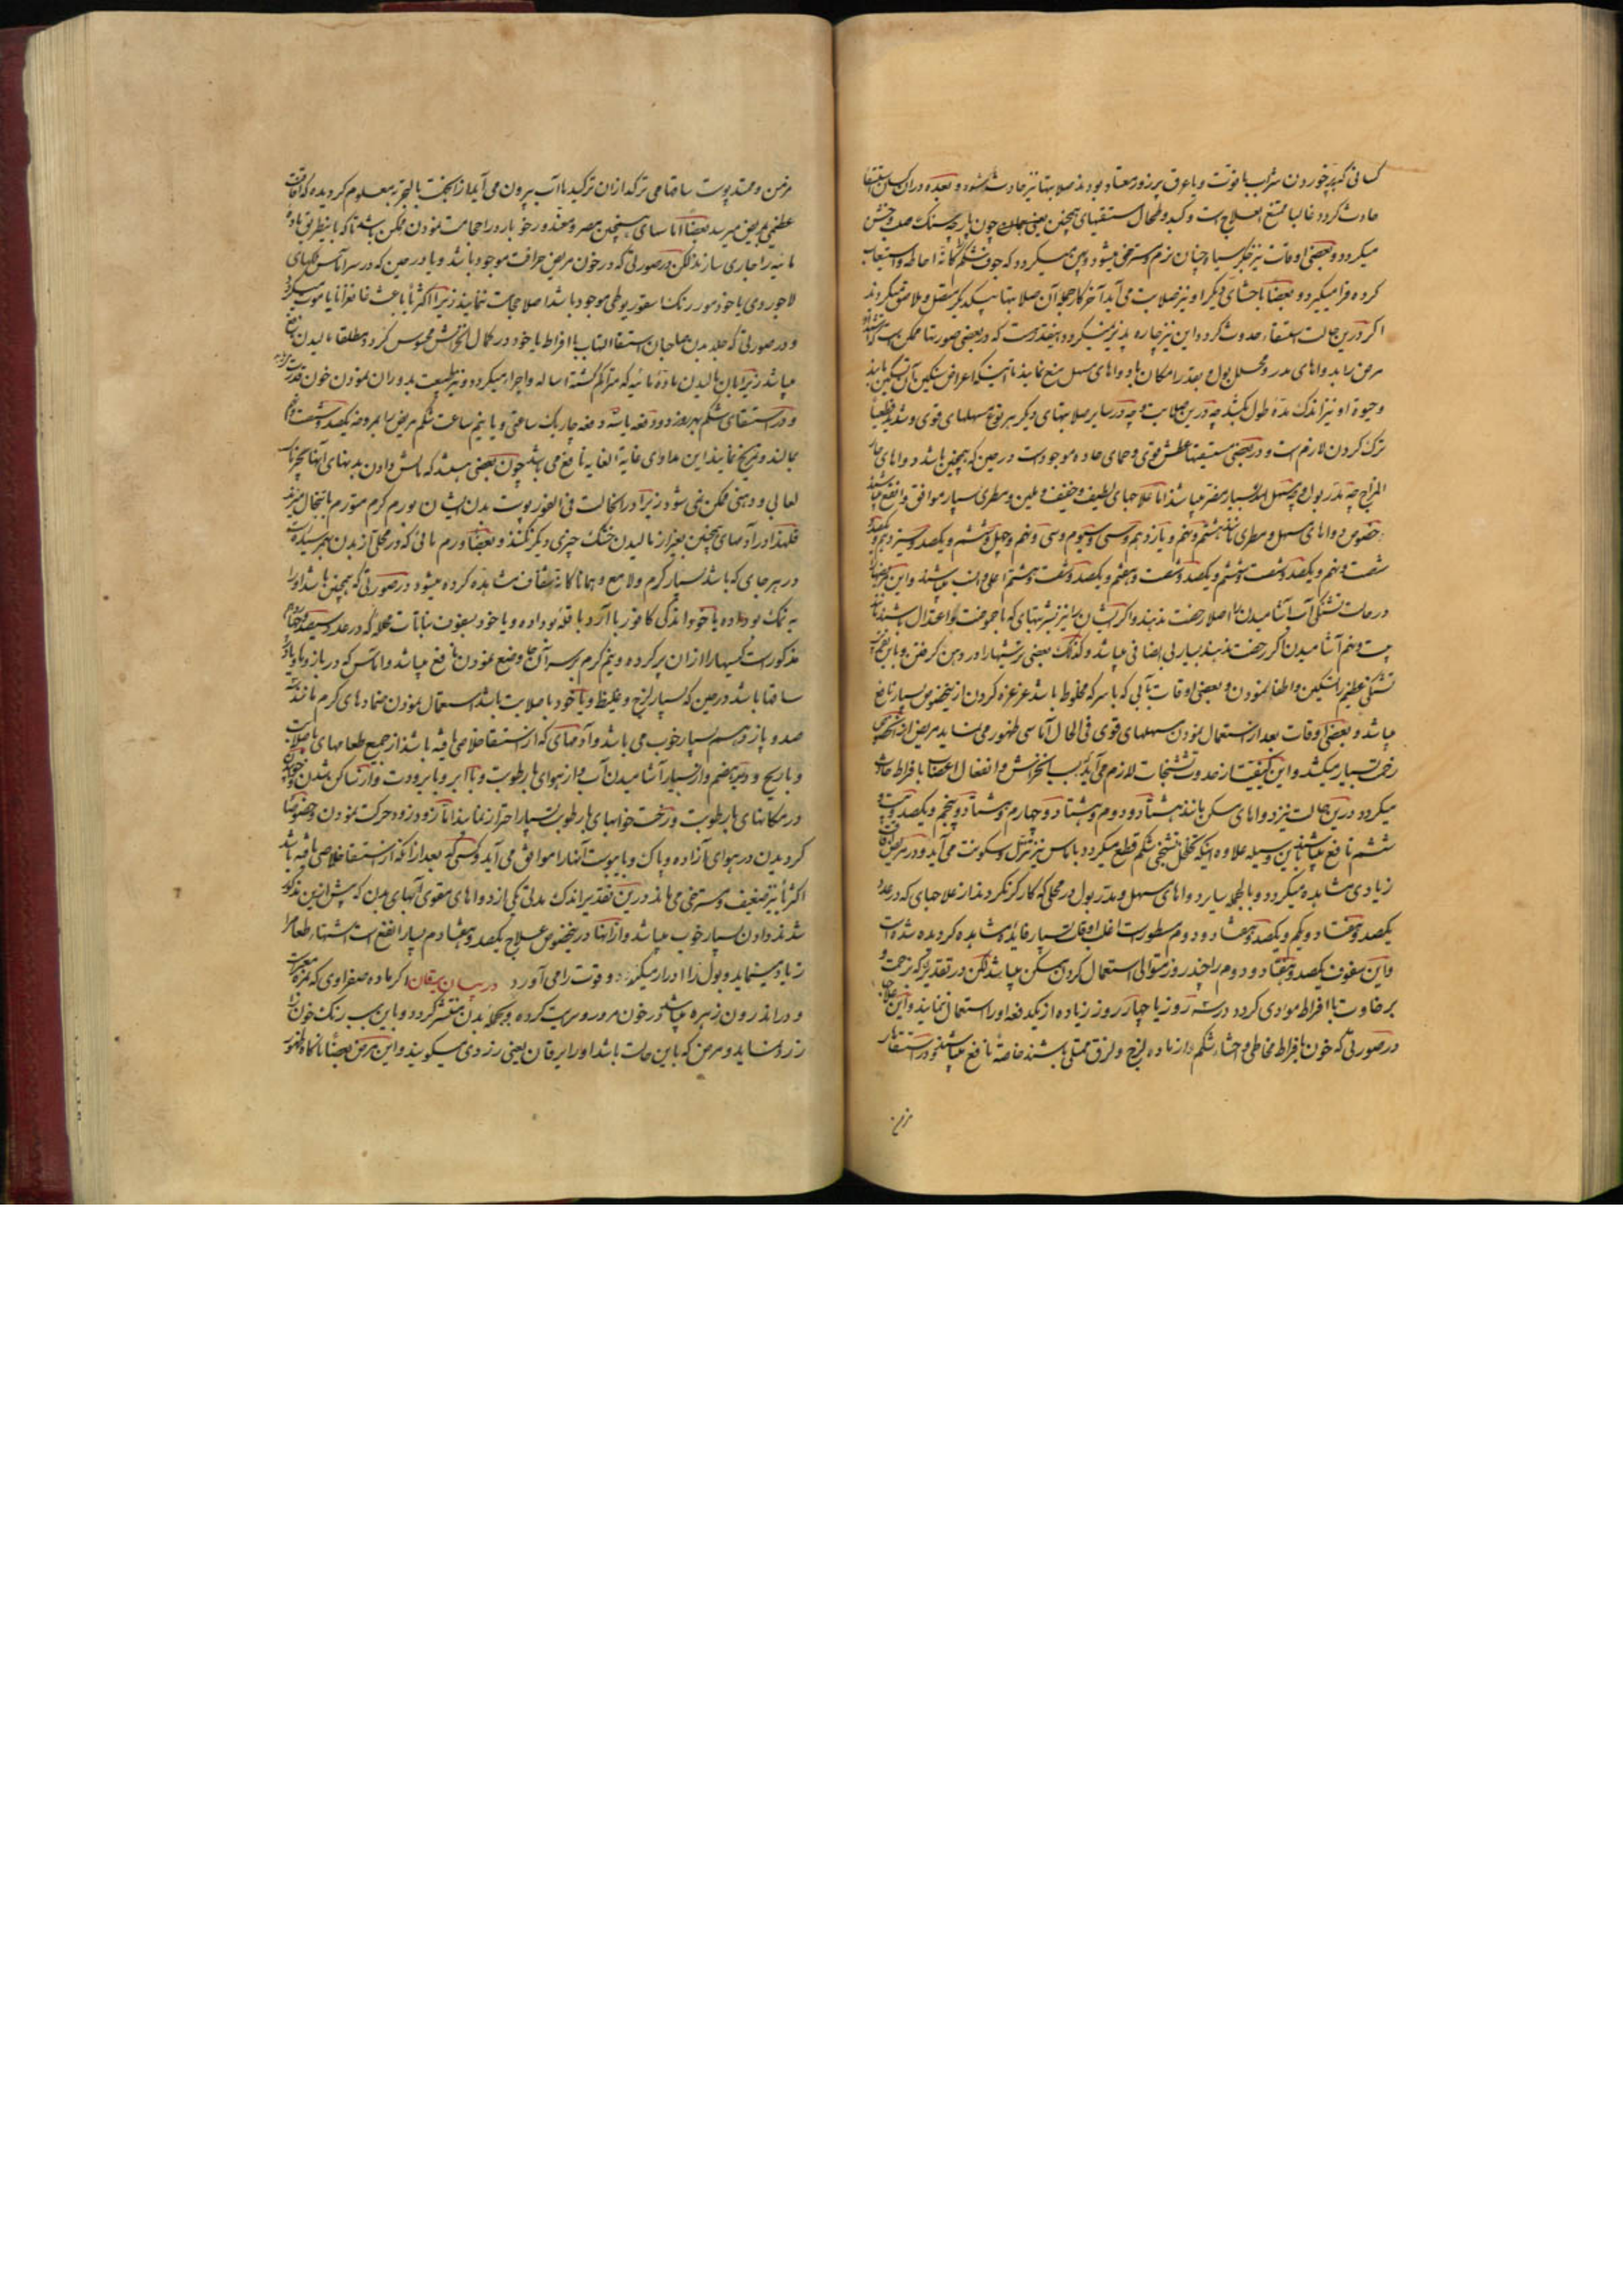 کسانی که بخوردن شراب با قوت و یا عرق پر زور معتاد بودند صلابتها نیز حادث میشود و بعده در آن کسان استسقا
حادث گردد غالبا ممتنع العلاج است و کبد و طحال مستسقیهای همچنین یعنی چون پارچه سنگ صلب و خشن
میگردد و بعضی اوقات نیز جگر سیاه چنان نرم و مسترخی میشود و پهن میگردد که جوف شکم را کانه احاطه و استیعاب
کرده فرا میگیرد و بعضا باحشای دیگر او نیز صلابت می آید آخر کار جمله آن صلابتها بیکدیگر متصل و ملاصق میگردند
اگر درین حالت استسقاء حدوث گردد این نیز چاره پذیر نمیگردد و اینقدر هست که در بعضی صورتها ممکن است که
مرض را بدواهای مدر و محلل بول و بقدر امکان با دواهای مسهل منع نمایند تا اینکه اعراض تسکین یابند
و حیوة او نیز اندک مدة طول بکشد چه درین صلابت و چه در سایر صلابتهای دیگر هر نوع مسهلهای قوی و شدید قطعا
ترک کردن لازم است و در بعضی مستسقیها عطش قوی و حمای حاده موجود است در حین که همچنین باشد دواهای حار
المزاج چه مدر بول و چه مسهل بسیار مضر میباشد اما علاجهای لطیف و خفیف و ملین و مطری بسیار موافق و انفع میباشد
خصوص دواهای مسهل و مطری مانند هشتم و نهم و یازدهم و سی و سیوم و سی و نهم و چهل و ششم و یکصد و سیزدهم و یکصد و
شصت و نهم و یکصد و شصت و ششم و یکصد و شصت و هفتم و یکصد و شصت و هشتم اعلی و انسب میباشند و این مریضها را
در حالت تشنگی آب آشامیدن را اصلا رخصت ندهند و اگر ایشان را نیز شربتهای که با حموضت و اعتدال باشند مانند
بیست و نهم آشامیدن اگر رخصت ندهند بسیار بی انصافی میباشد و کذلک بعضی ترشیها را در دهن گرفتن و باین نوع
تشنگی عظیم را تسکین و اطفا نمودن و بعضی اوقات بآبی که با سرکه مخلوط باشد غرغره کردن ازین خصوص بسیار نافع
میباشد و بعضی اوقات بعد از استعمال نمودن مسهلهای قوی فی الحال آماسی ظهور می نماید مریض ازین خصوص
زحمت بسیار میکشد و این کیفیت از حدوث تشنجات لازم می آید بسبب انخراش و انفعال اعصاب با فراط حادث
میگردد درین حالت نیز دواهای مسکن مانند هشتاد و دوم و هشتاد و چهارم و هشتاد و پنجم و یکصد و بیست و
ششم نافع میباشند باین وسیله علاوه اینکه تحلل تشنجی شکم قطع میگردد بآماس نیز تنزل و سکونت می آید و در مرض خفت
زیادی مشاهده میگردد و بالجمله سایر دواهای مسهل و مدر بول در محلی که کارگر نگردند از علاجهای که در عدد
یکصد و هفتاد و یکم و یکصد و هفتاد و دوم مسطورست اغلب اوقات بسیار فایده مشاهده کردیده شده است
و این سفوف یکصد و هفتاد و دوم را چند روز متوالی استعمال کردن ممکن میباشد لکن در تقدیری که زحمت و
برخاوت با افراط مؤدی گردد در سه روز یا چهار روز زیاده از یکدفعه او را استعمال ننمایند و این علاجها
در صورتی که خون با فراط مخاطی و احشاء شکم از ماده لزج و لزق ممتلی باشند خاصة نافع میباشند و در استسقاء
مزمن
مزمن و ممتد پوست ساقها می ترکد از آن ترکیدها آب بیرون می آید اما ازینجهت بالتجربه معلوم کردیده که آفت
عظیمی بمریض میرسد بعضا آماسهای همچنین مضر و مغذور خو بار در احجامت نمودن ممکن باشد تا که باینطریق ماده
مائیه را جاری سازند لکن در صورتی که در خون مریض حرافت موجود باشد و یا در حین که در سر آماس لکهای
لاجوردی یا خود مور رنگ اسقوربوطی موجود باشد اصلا حجامت ننمایند زیرا اکثریا باعث غانغرانا یا موت میگردد
و در صورتی که جلد بدن صاحبان استسقا التهاب با افراط یا خود در کمال انخراش محسوس گردد مطلقا مالیدن نافع
میباشد زیرا بآن مالیدن مادة مائیه که متراکم گشته اساله و اجراء میگردد و نیز طبیعت بدوران نمودن خون قدرت
و در استسقای شکم بهر روز دو دفعه یا سه دفعه چاریک ساعتی و یا نیم ساعت شکم مریض را بمروخ یکصد و شصت و نهم
بمالند و تمریخ نمایند این مداوای غایة الغایه نافع می باشد چون بعضی هستند که مالش دادن بدنهای آنها بچیزهای
لعابی و دهنی ممکن نمی شود زیرا در آنحالت فی الفور پوست بدن ایشان مورم گرم متورم بانتحال میزند
فلهذا در آدمهای همچنین بغیر از مالیدن خشک چیزی دیگر نکنند و بعضا ورم مائی که در محلی از بدن بهم رسیده است
در هر جای که باشد بسیار گرم و لامع و همانا کانه شفاف مشاهده کرده میشود در صورتی که همچنین باشد او را
به نمک بو داده یا خود اندکی کافور با آرد باقله بو داده و یا خود بسفوف نباتات محلله که در عدد سیصد و پنجم
مذکور است کیسها را از آن پر کرده و نیم گرم بر سر آن جا وضع نمودن نافع میباشد و آماس که در بازوها و یا در
ساقها باشد در حین که بسیار لزج و غلیظ و یا خود با صلابت باشد استعمال نمودن ضمادهای گرم مانند
صد و پازدهم بسیار خوب می باشد و آدمهای که از استسقا خلاصی یافته باشند از جمیع طعامهای با صلابت
و با ریح و دیر هضم و از بسیار آشامیدن آب و از هوای با رطوبت و با ابر و با برودت و از ساکن شدن و خوابیدن
در مکانهای با رطوبت و در رخت خوابهای با رطوبت بسیار احتراز نمایند اما زود زود حرکت نمودن و خصوصا
گردیدن در هوای آزاده و پاک و با یبوست آنها را موافق می آید و کسی که بعد از آنکه از استسقا خلاصی یافته باشد
اکثریا نیز ضعیف و مسترخی می ماند درین تقدیر اندک مدتی یکی از دواهای مقوی آلتهای بدن که پیش ازین مذکور
شدند دادن بسیار خوب میباشد و از آنها درین خصوص علاج یکصد و هشتادم بسیار انفع است اشتهاء طعام را
زیاد مینماید و بول را ادرار میکند و قوت را می آورد در بیان یرقان اگر ماده صفراوی که مره معبر است
و در اندرون زهره میباشد در خون مرور و سرایت کرده و بجمله بدن منتشر گردد و باین سبب رنگ خون را
زرد نماید و مرض که باین حالت باشد او را یرقان یعنی زردی میگویند و این مرض بعضا ناگاه ظهور